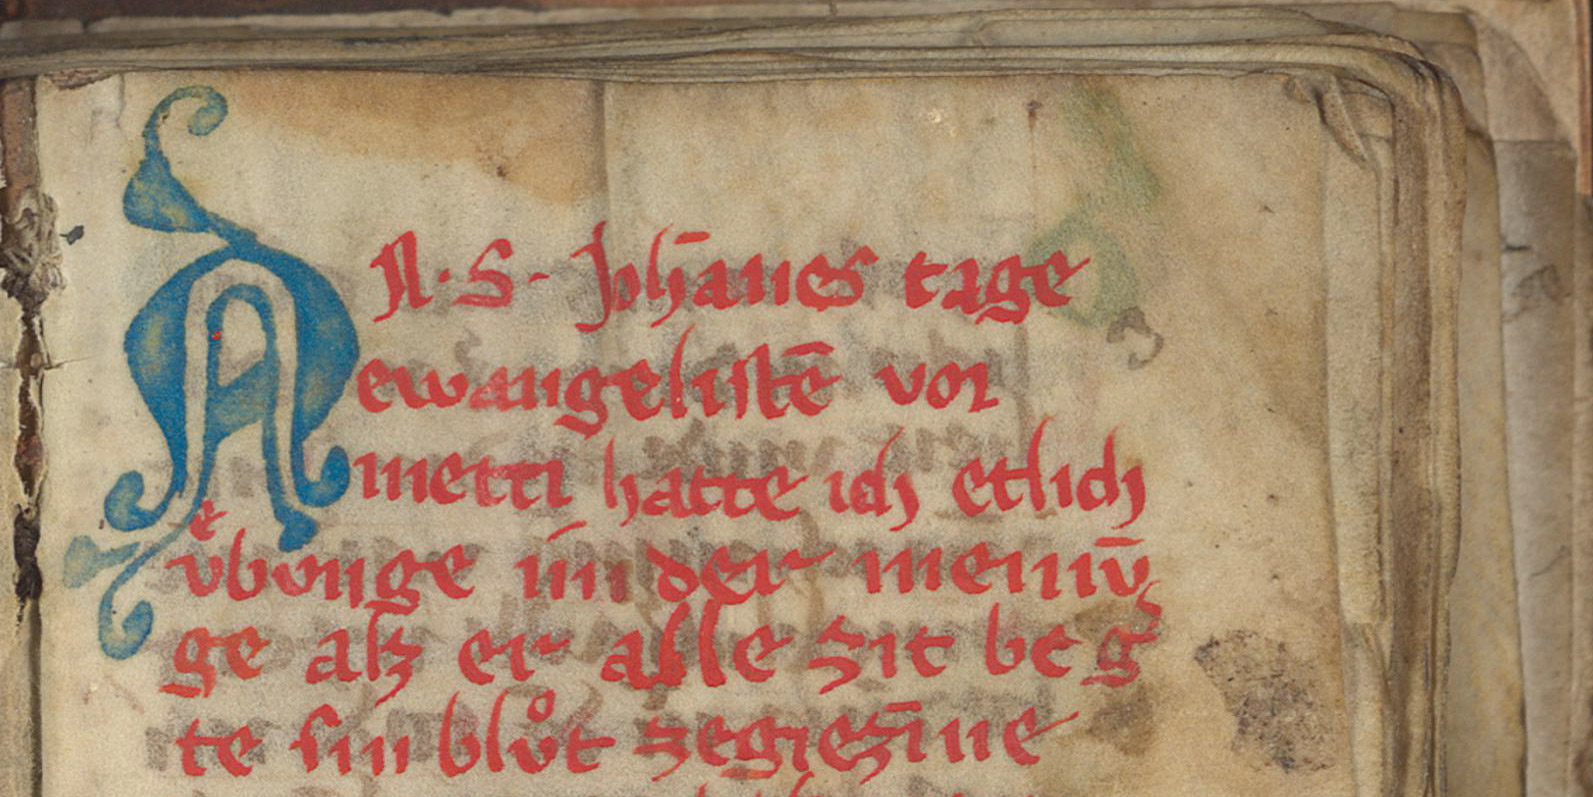 AN · S · Joh̄anes tage
ewangelistē vor
metti hatte ich etlich
vͤbunge in der meinū
ge alz er alle zit beg
te sin blůt zegiezīne